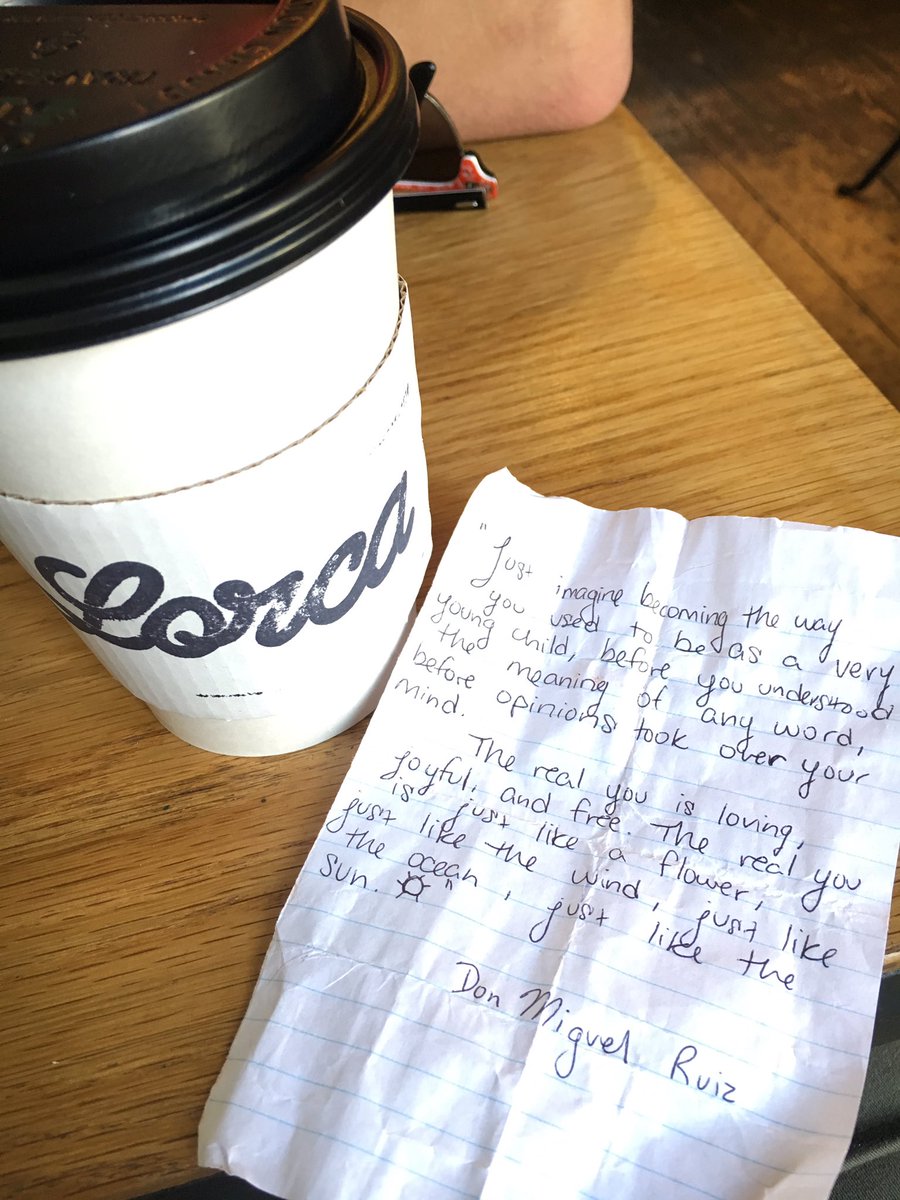 Lorca
"Just imagine becoming the way
you used to be as a very
young child, before you understood
the meaning of any word,
before opinions took over your
mind.
The real you is loving,
joyful, and free. The real you
is just like a flower,
just like the wind, just like
the ocean, just like the
sun. "
Don Miguel Ruiz